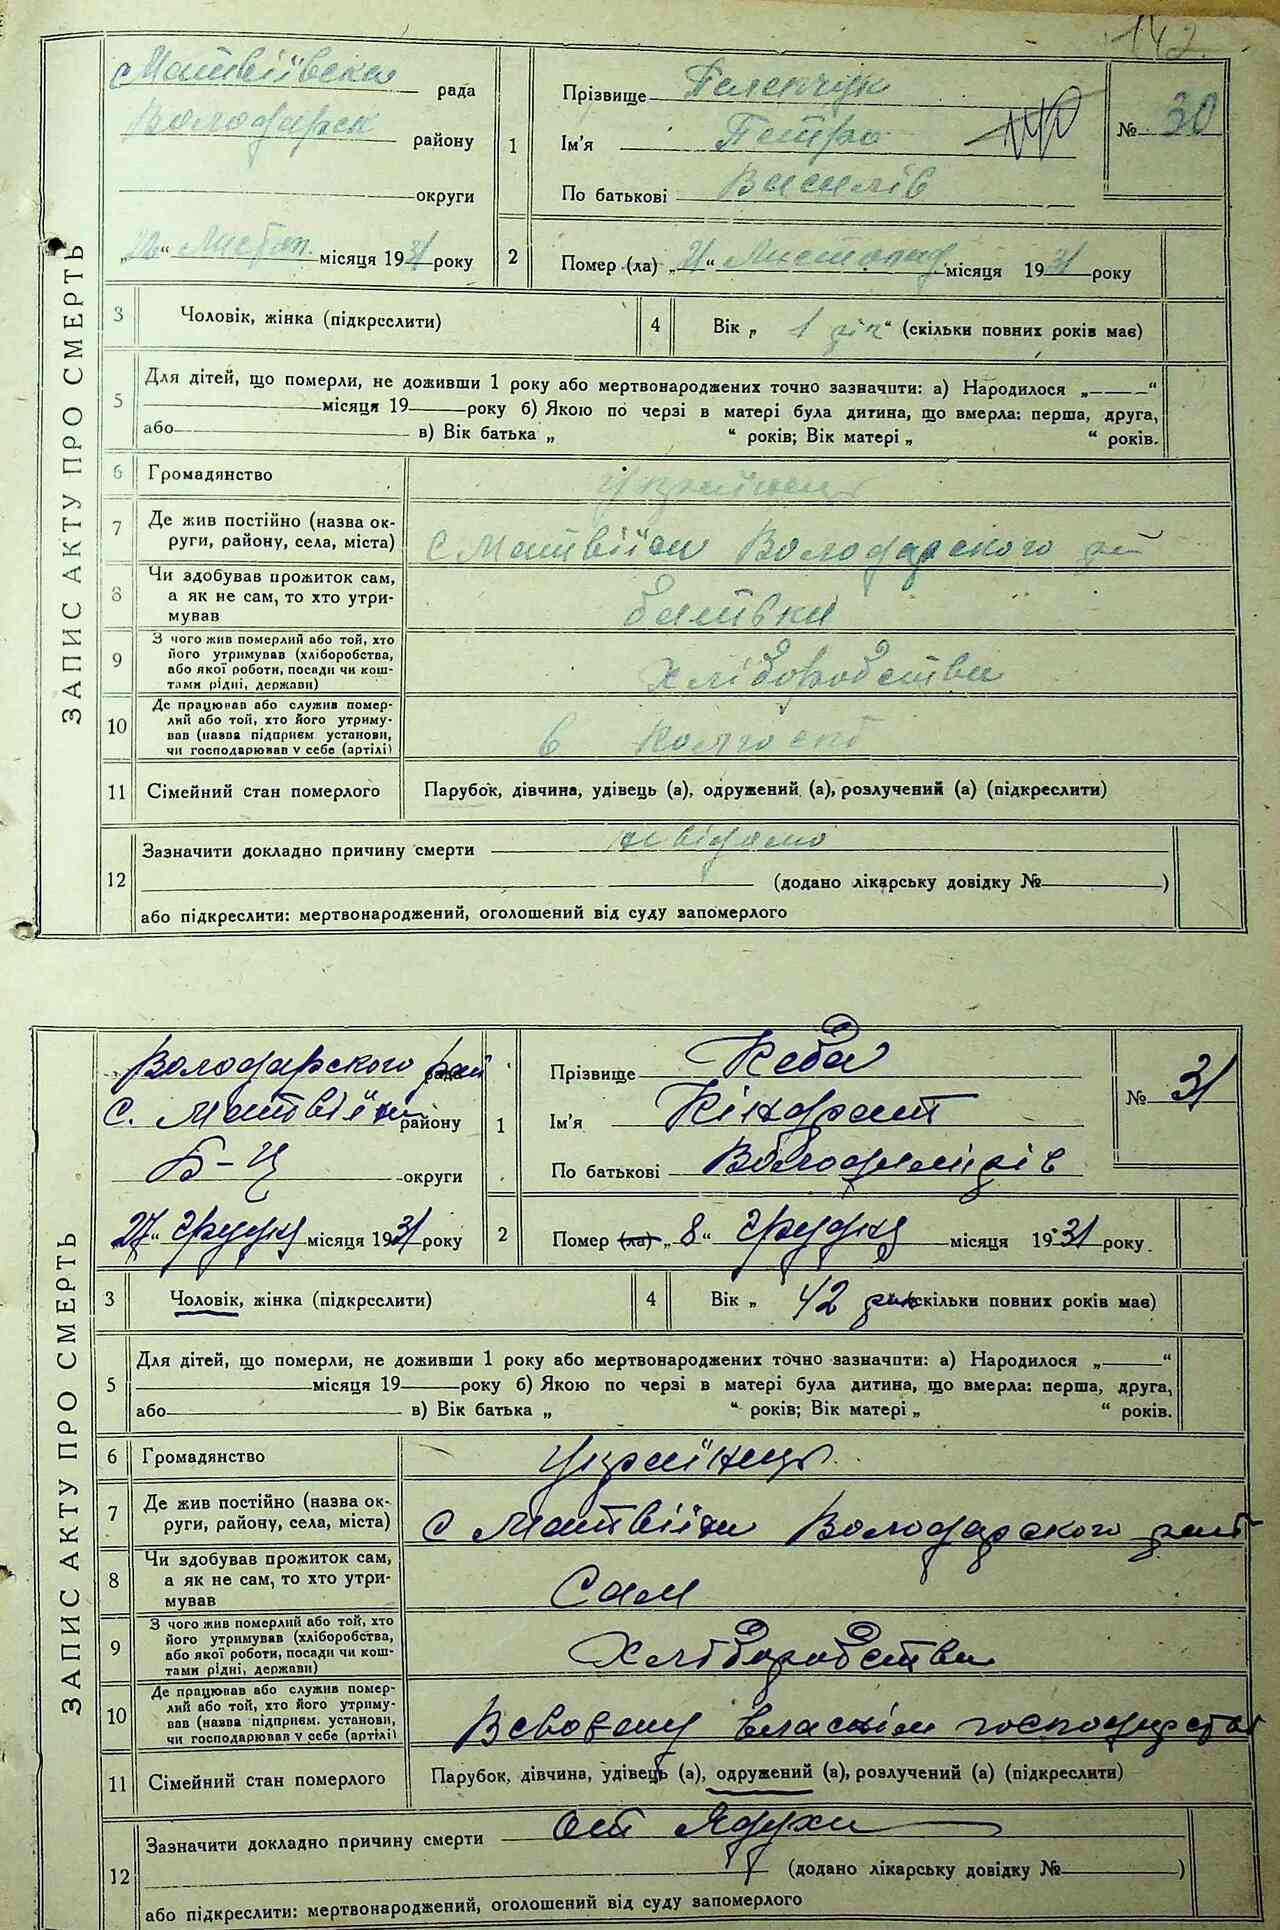 142.
ЗАПИС АКТУ ПРО СМЕРТЬ
с Матвіївска рада
Володарск району
округи
„22“ Листоп. місяця 1931 року
1
Прізвище
Ім'я Петро
По батькові Василів
№ 30
2
Помер (ла) „21“ Листопад місяця 1931 року
3 Чоловік, жінка (підкреслити)
4 Вік „ 1 рік “ (скільки повних років має)
5 Для дітей, що померли, не доживши 1 року або мертвонароджених точно зазначити: а) Народилося „——“
місяця 19 року б) Якою по черзі в матері була дитина, що вмерла: перша, друга,
або в) Вік батька „ “ років; Вік матері „ “ років.
6 Громадянство Українець
7 Де жив постійно (назва ок-
руги, району, села, міста) с Матвіїхи Володарского р
8 Чи здобував прожиток сам,
а як не сам, то хто утри-
мував батьки
9 З чого жив померлий або той, хто
його утримував (хліборобства,
або якої роботи, посади чи кош-
тами рідні, держави) Хліборобства
10 Де працював або служив помер-
лий або той, хто його утриму-
вав (назва підприєм установи,
чи господарював у себе (артілі) в Колгоспі
11 Сімейний стан померлого Парубок, дівчина, удівець (а), одружений (а), розлучений (а) (підкреслити)
12 Зазначити докладно причину смерти невідомо
(додано лікарську довідку № )
або підкреслити: мертвонароджений, оголошений від суду запомерлого
ЗАПИС АКТУ ПРО СМЕРТЬ
Володарского рай рада
с. Матвіїхи району
Б-Ц округи
„27“ Грудня місяця 1931 року
1
Прізвище Кеба
Ім'я Кіндрат
По батькові Володимирів
№ 31
2
Помер (ла) „8“ Грудня місяця 1931 року.
3 Чоловік, жінка (підкреслити)
4 Вік „ 42 рик скільки повних років має)
5 Для дітей, що померли, не доживши 1 року або мертвонароджених точно зазначити: а) Народилося „——“
місяця 19 року б) Якою по черзі в матері була дитина, що вмерла: перша, друга,
або в) Вік батька „ “ років; Вік матері „ “ років.
6 Громадянство Українець
7 Де жив постійно (назва ок-
руги, району, села, міста) с Матвіїхи Володарского
8 Чи здобував прожиток сам,
а як не сам, то хто утри-
мував Сам
9 З чого жив померлий або той, хто
його утримував (хліборобства,
або якої роботи, посади чи кош-
тами рідні, держави) Хліборобства
10 Де працював або служив помер-
лий або той, хто його утриму-
вав (назва підприєм. установи,
чи господарював у себе (артілі) В своему власнім господарстві
11 Сімейний стан померлого Парубок, дівчина, удівець (а), одружений (а), розлучений (а) (підкреслити)
12 Зазначити докладно причину смерти от Ядухи
(додано лікарську довідку № )
або підкреслити: мертвонароджений, оголошений від суду запомерлого